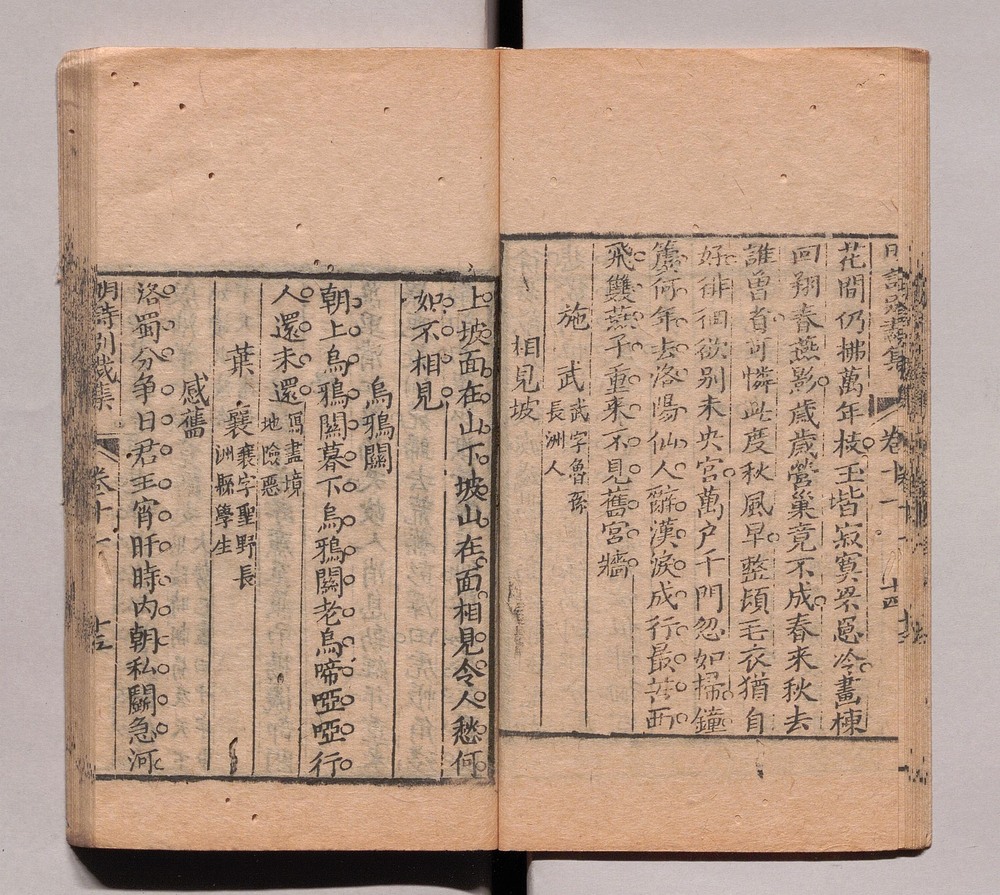 明詩別裁集 卷十一 十四
花間仍拂萬年枝玉堦寂寞罘罳冷畫棟
回翔春燕影歲歲營巢竟不成春來秋去
誰曾省可憐此度秋風早整頓毛衣猶自
好徘徊欲别未央宮萬户千門忽如掃鐘
簴何年去洛陽仙人辭漢淚成行最苦西
飛雙燕子重來不見舊宮牆
施武武字魯孫
長洲人
相見坡
上坡面在山下坡山在面相見令人愁何
如不相見
烏鴉關
朝上烏鴉關暮下烏鴉關老烏啼啞啞行
人還未還寫盡境
地險惡
葉襄襄字聖野長
洲縣學生
感舊
洛蜀分争日君王宵旰時内朝私鬭急河
明詩別裁集 卷十一 十五